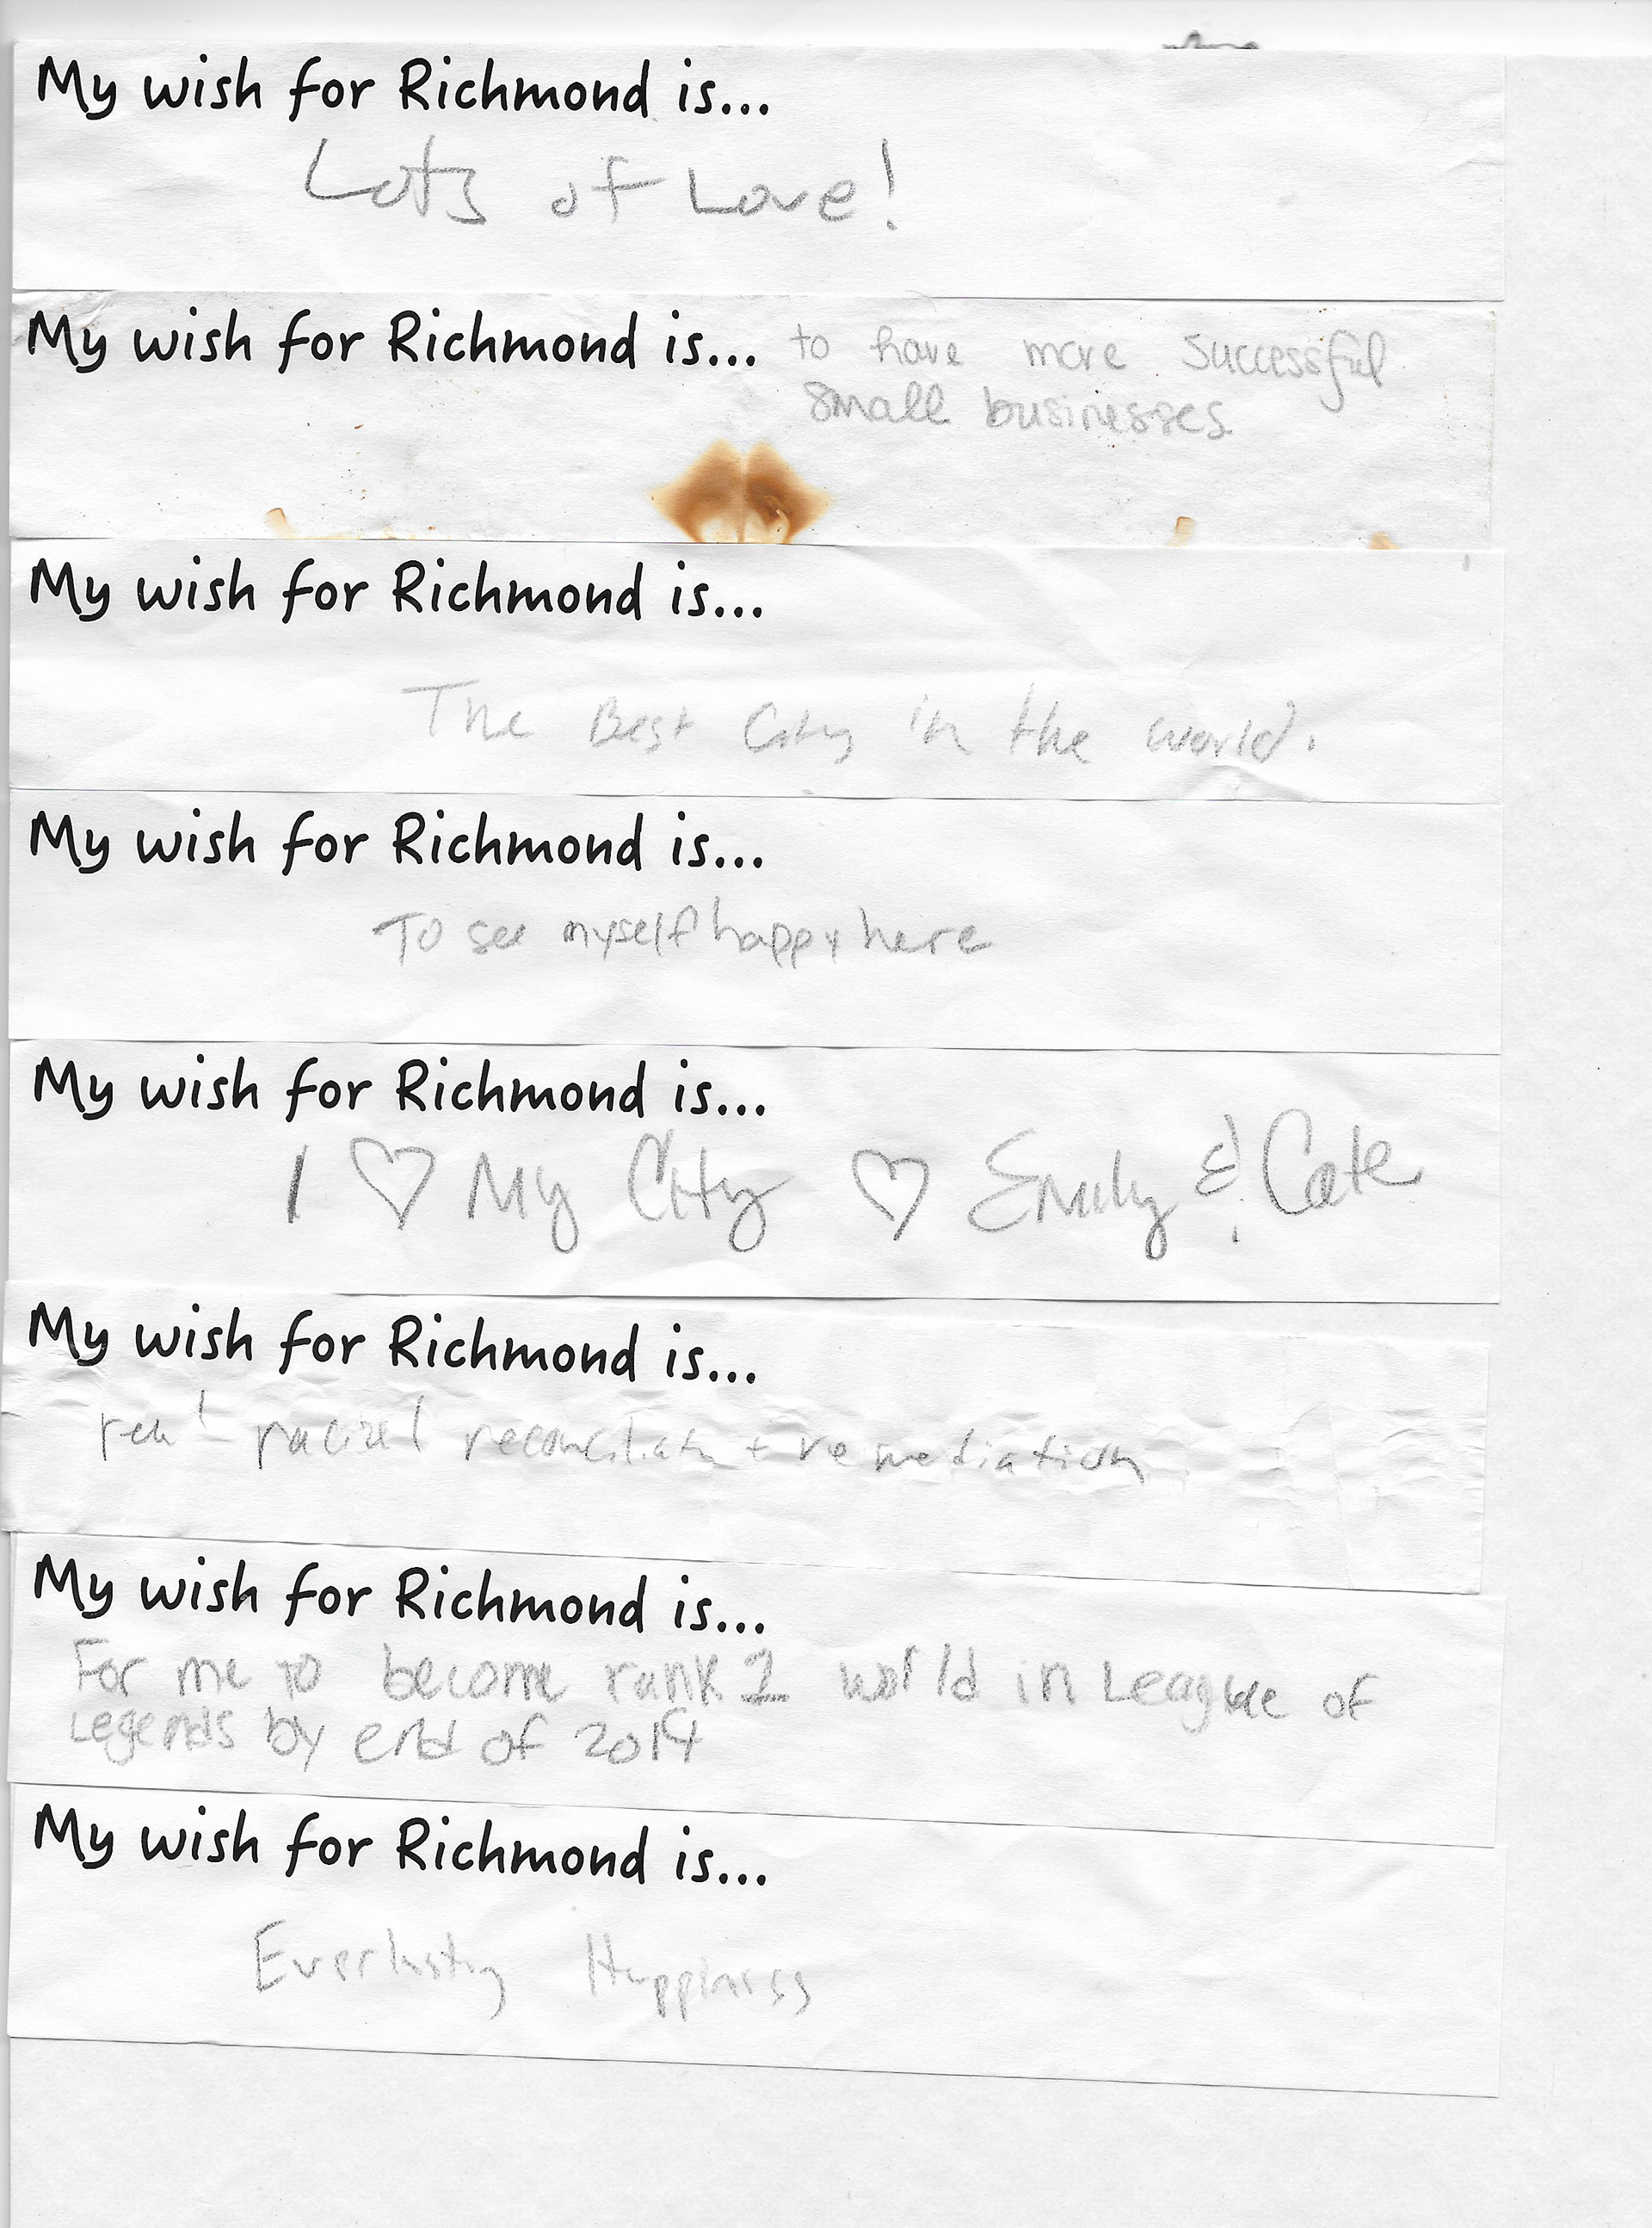 My wish for Richmond is...
Lots of Love!
My wish for Richmond is... to have more successful
small businesses
My wish for Richmond is...
The Best City in the world.
My wish for Richmond is...
To see myself happy here
My wish for Richmond is...
I ♡ My City ♡ Emily & Cate
My wish for Richmond is...
real racial reconciliation + remediation
My wish for Richmond is...
For me to become rank 1 world in League of
Legends by end of 2019
My wish for Richmond is...
Everlasting Happiness